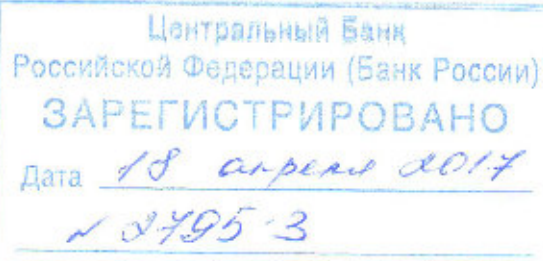 Центральный Банк
Российской Федерации (Банк России)
ЗАРЕГИСТРИРОВАНО
Дата 18 апреля 2017
№ 2795-3